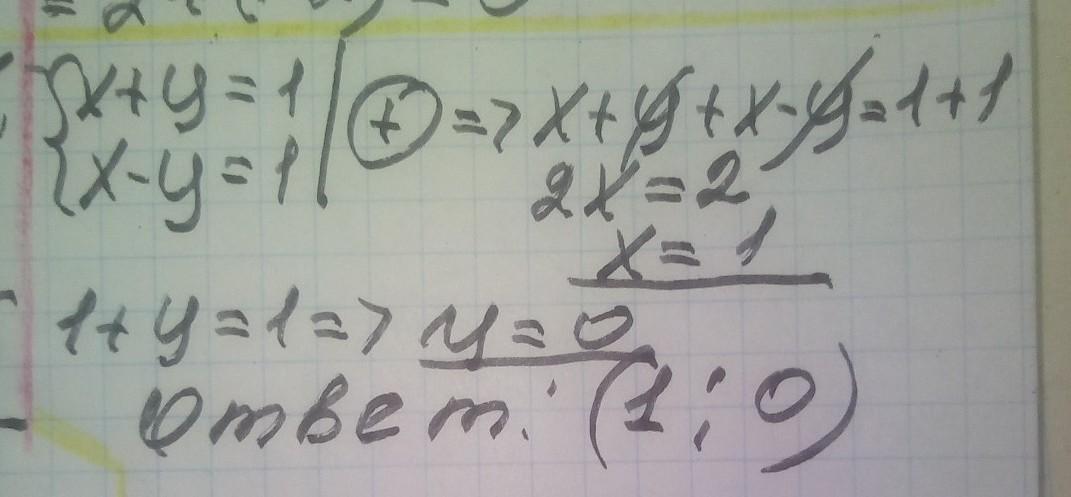 {x+y=1 | (+) => x+y+x-y=1+1
{x-y=1 |
2x=2
x=1
1+y=1=> y=0
Ответ: (1; 0)